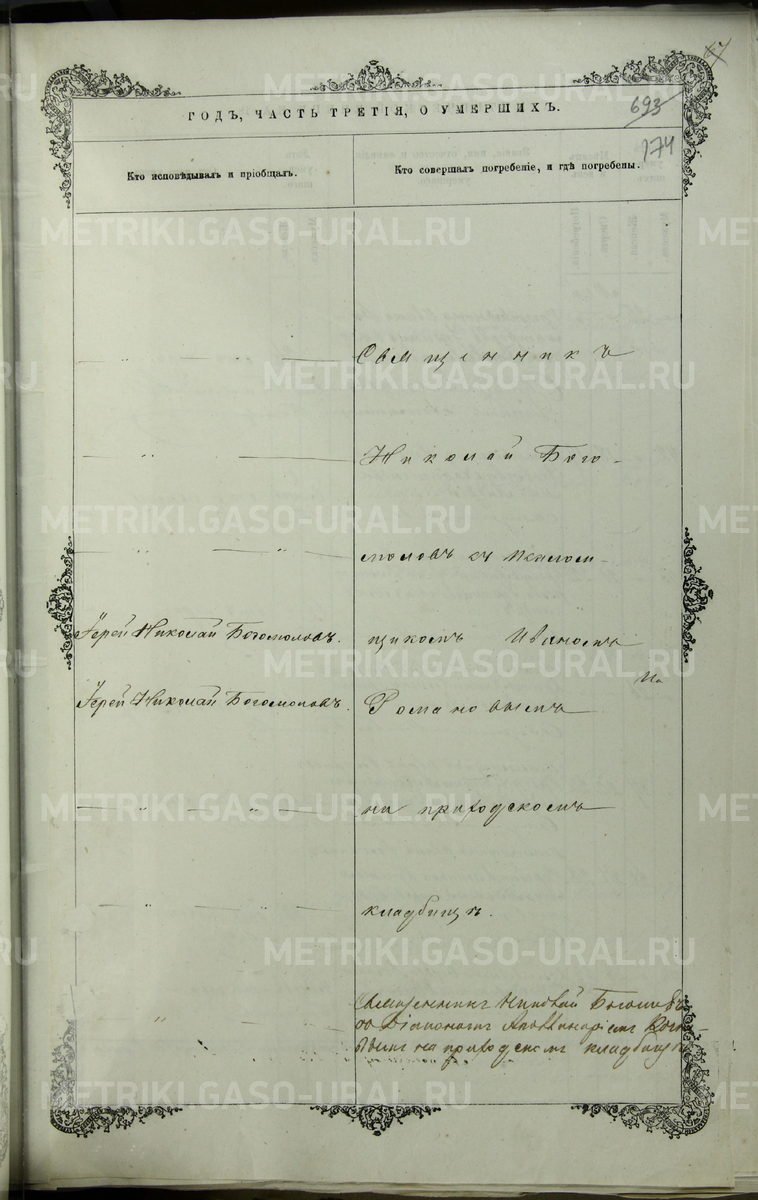 47
693
174
ГОДЪ, ЧАСТЬ ТРЕТІЯ, О УМЕРШИХЪ.
Кто исповѣдывалъ и пріобщалъ.
Кто совершалъ погребеніе, и гдѣ погребены.
Священникъ
Николай Бого-
моловъ съ псалом-
Іерей Николай Богомоловъ. щикомъ Иваномъ
Іерей Николай Богомоловъ. Романовымъ
на приходскомъ
кладбищѣ.
Священникъ Николай Богомоловъ
со Діакономъ Аполлинаріемъ
на приходскомъ кладбищѣ
METRIKI.GASO-URAL.RU